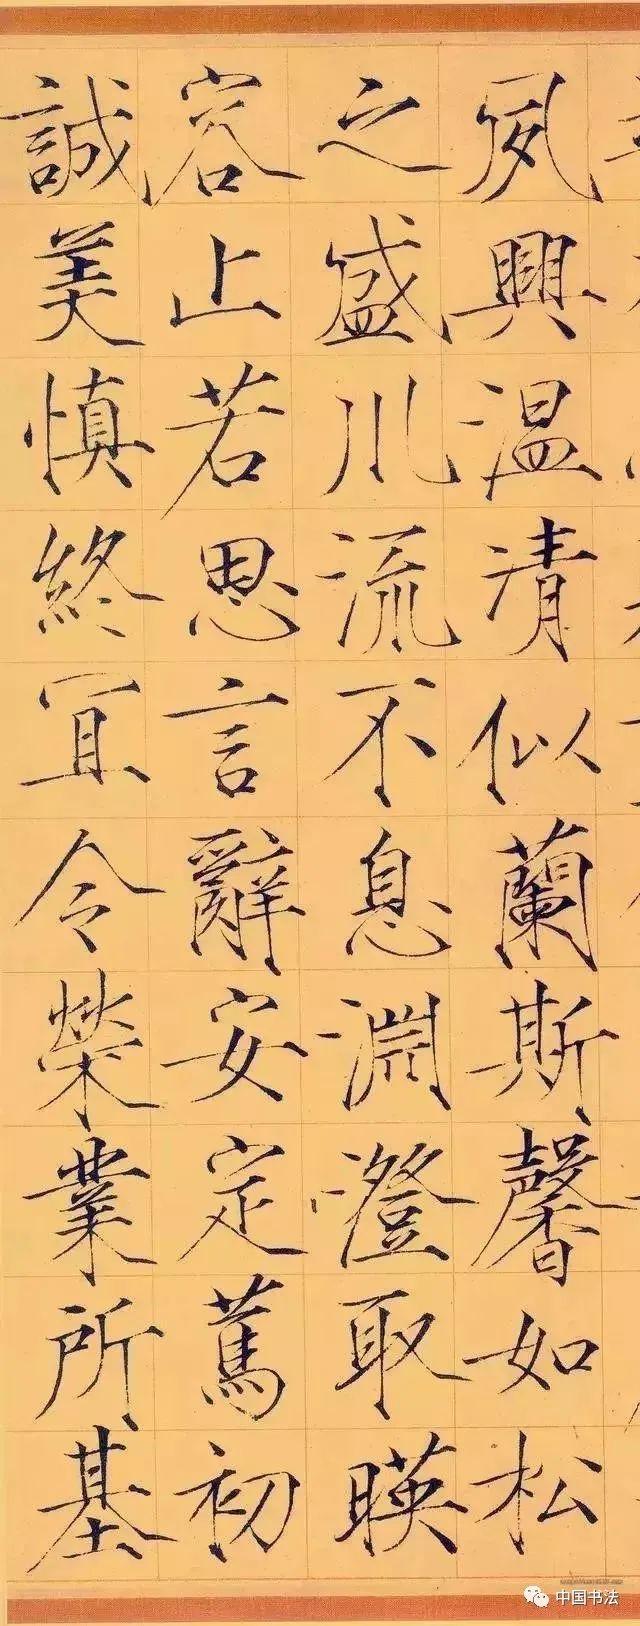 夙興温凊似蘭斯馨如松
之盛川流不息淵澄取暎
容止若思言辭安定篤初
誠美慎終宜令榮業所基
中国书法